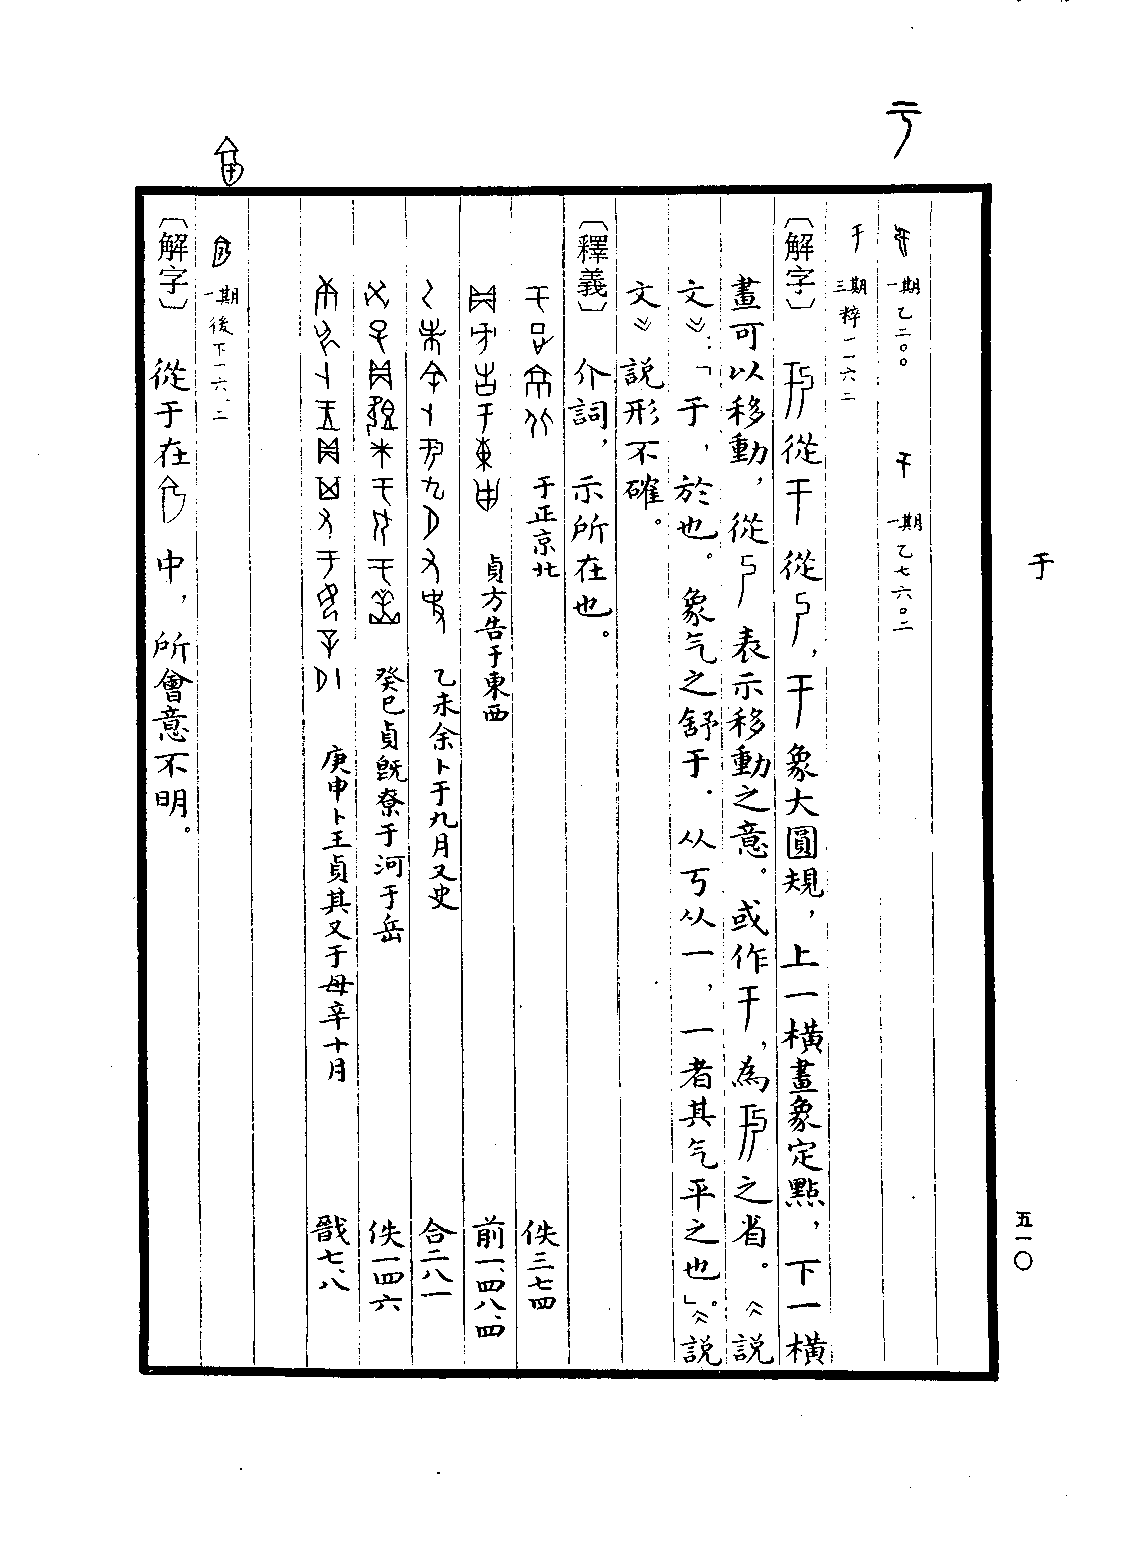 于
五一〇
一期乙二〇〇
一期乙七六〇二
三期粹一一六二
〔解字〕 從干從，干象大圓規，上一橫畫象定點，下一橫
畫可以移動，從表示移動之意。或作干，為之省。《說
文》：「于，於也。象气之舒于．从丂从一，一者其气平之也」。《說
文》說形不確。
〔釋義〕 介詞，示所在也。
于正京北 佚三七四
貞方告于東西 前一、四八、四
乙未余卜于九月又史 合二八一
癸巳貞旣尞于河于岳 佚一四六
庚申卜王貞其又于母辛十月 戩七、八
一期後下一六、二
〔解字〕 從于在中，所會意不明。